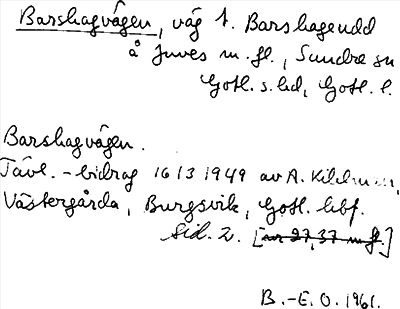 Barshagvägen, väg t. Barshageudd
å Juves m.fl., Sundre sn
Gotl. s. hd, Gotl. l.
Barshagvägen.
Tävl.-bidrag 16/3 1949 av A.
Västergårda, Burgsvik, Gotl. hbf.
Sid. 2. [nr 27, 37 m.fl.]
B.-E. O. 1961.